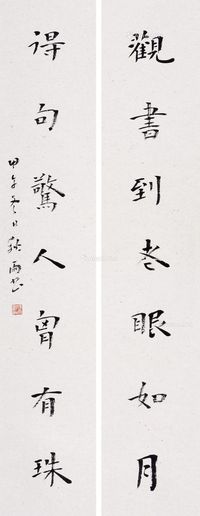 觀書到老眼如月
得句驚人胷有珠
甲午冬日秋雨書